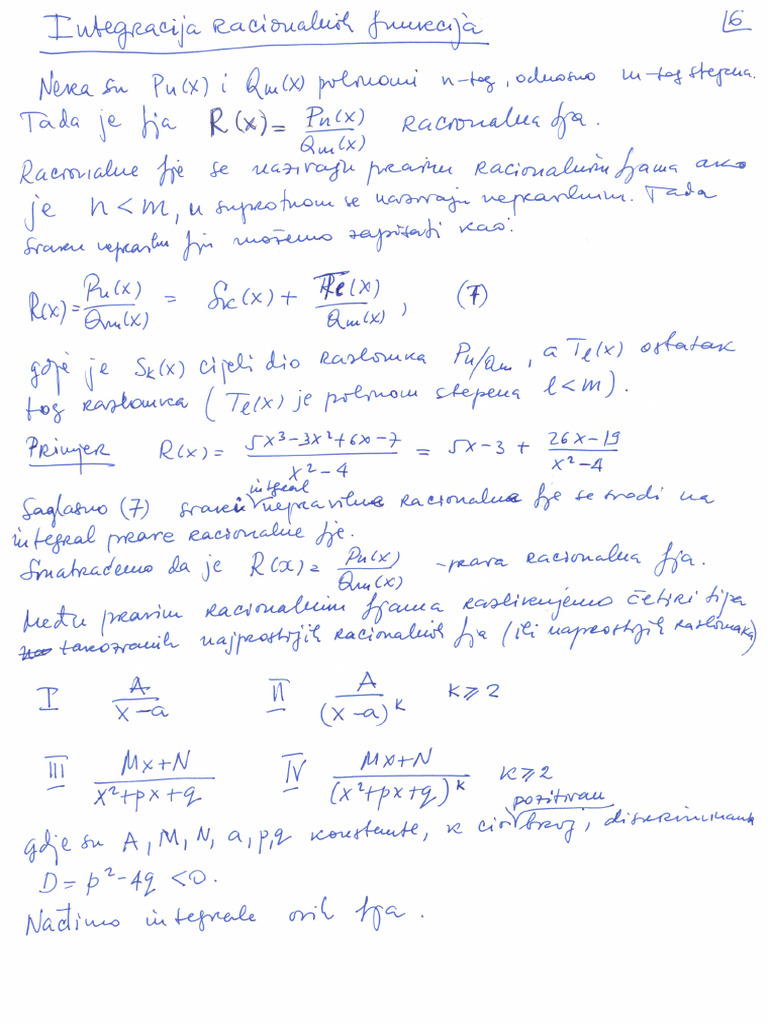 Integracija racionalnih funkcija
6
Neka su Pn(x) i Qm(x) polinomi n-tog, odnosno m-tog stepena.
Tada je fja R(x) = Pn(x)/Qm(x) racionalna fja.
Racionalne fje se nazivaju pravim racionalnim fjama ako
je n < m, u suprotnom se nazivaju nepravilnim. Tada
svaku nepravilnu fju možemo zapisati kao:
R(x) = Pn(x)/Qm(x) = Sk(x) + Tl(x)/Qm(x), (7)
gdje je Sk(x) cijeli dio razlomka Pn/Qm, a Tl(x) ostatak
tog razlomka (Tl(x) je polinom stepena l < m).
Primjer R(x) = (5x³-3x²+6x-7)/(x²-4) = 5x-3 + (26x-19)/(x²-4)
Saglasno (7) integral nepravilne racionalne fje se svodi na
integral prave racionalne fje.
Smatraćemo da je R(x) = Pn(x)/Qm(x) - prava racionalna fja.
Među pravim racionalnim fjama razlikujemo četiri tipa
takozvanih najprostijih racionalnih fja (ili najprostijih razlomaka)
I A/(x-a) II A/(x-a)^k k ⩾ 2
III (Mx+N)/(x²+px+q) IV (Mx+N)/(x²+px+q)^k k ⩾ 2
gdje su A, M, N, a, p, q konstante, k pozitivan broj, diskriminanta
D = p²-4q < 0.
Nađimo integrale ovih fja.